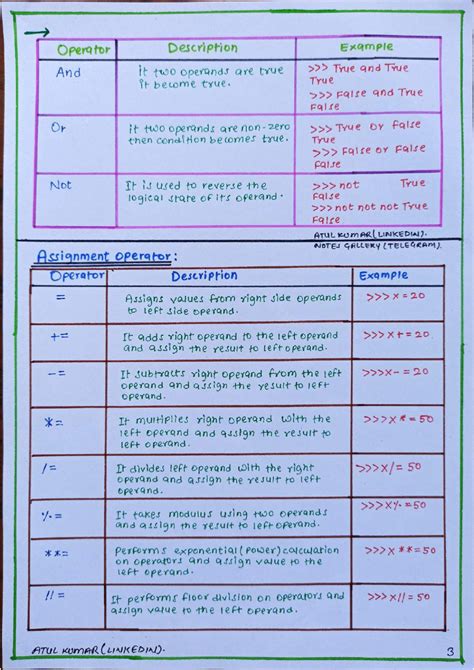 Operator Description Example
And
it two operands are true
it become true.
>>> True and True
True
>>> False and True
False
Or
it two operands are non-zero
then condition becomes true.
>>> True or False
True
>>> False or False
False
Not
It is used to reverse the
logical state of its operand.
>>> not True
False
>>> not not not True
False
ATUL KUMAR (LINKEDIN).
NOTES GALLERY (TELEGRAM).
Assignment operator:
Operator Description Example
=
Assigns values from right side operands
to left side operand.
>>>x=20
+=
It adds right operand to the left operand
and assign the result to left operand.
>>>x+=20
-=
It subtracts right operand from the left
operand and assign the result to left
operand.
>>>x-=20
*=
It multiplies right operand with the
left operand and assign the result to
left operand.
>>>x*=50
/=
It divides left operand with the right
operand and assign the result to left
operand.
>>>x/=50
%=
It takes modulus using two operands
and assign the result to left operand.
>>>x%=50
**=
Performs exponential (power) calculation
on operators and assign value to the
left operand.
>>>x**=50
//=
It performs floor division on operators and
assign value to the left operand.
>>>x//=50
ATUL KUMAR (LINKEDIN).
3